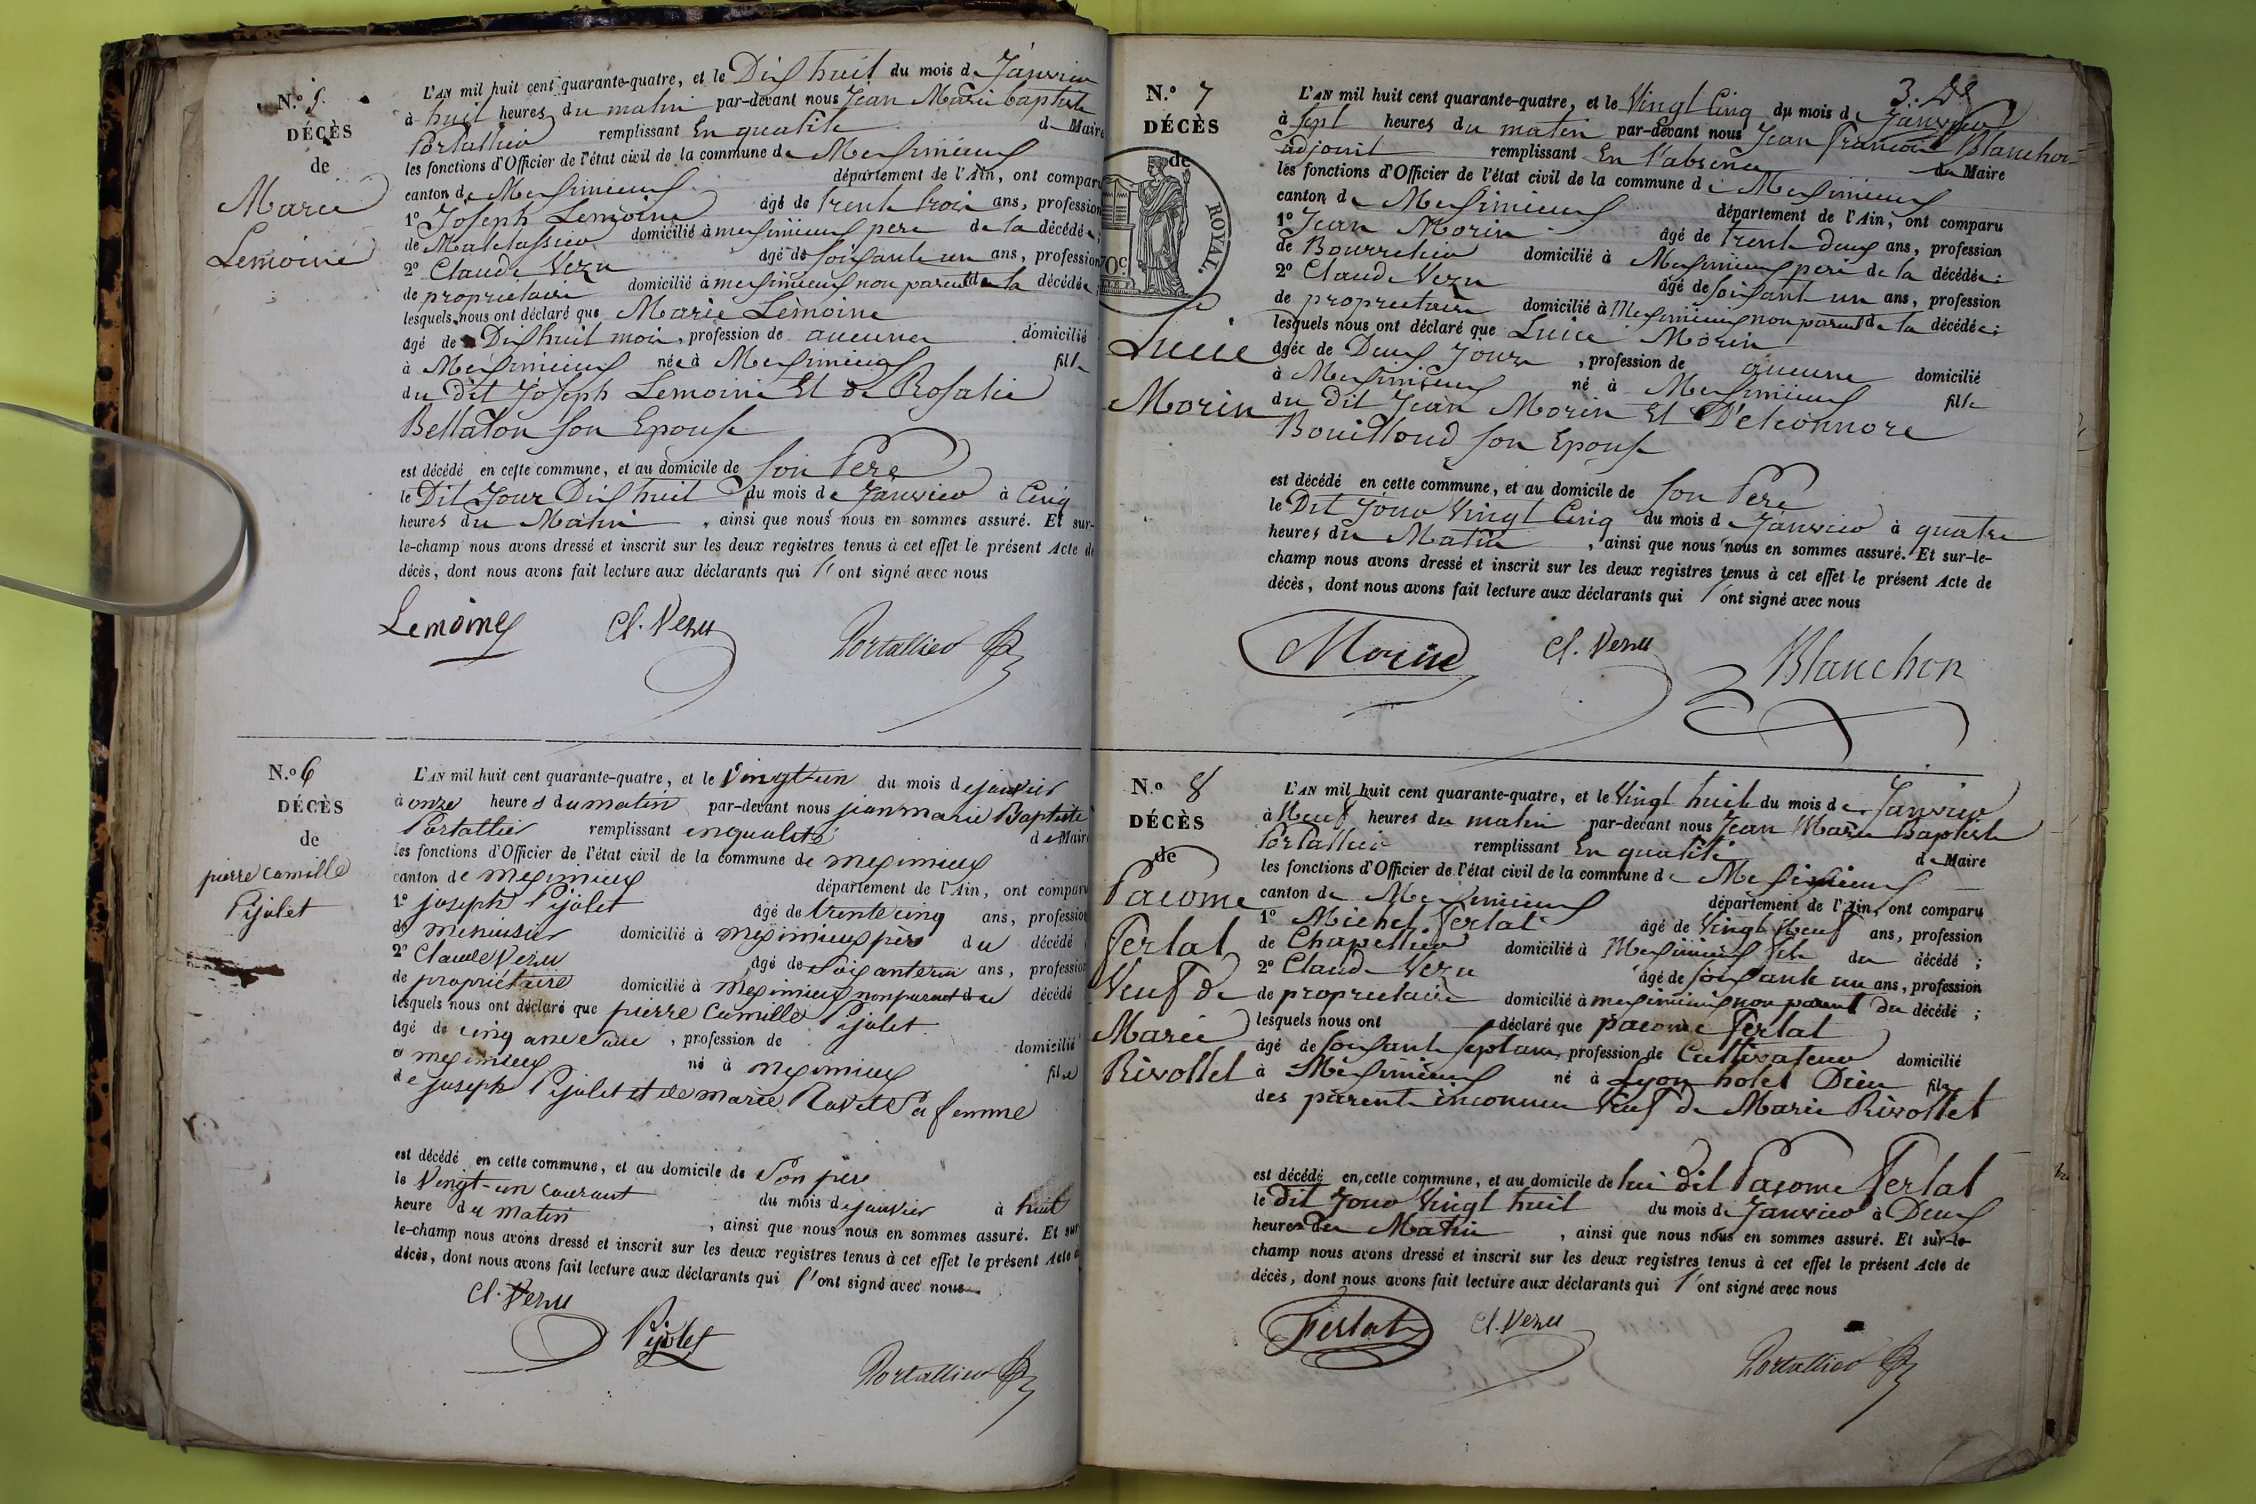 N.º 5.
DÉCÈS
de
Marie
Lemoine
L'AN mil huit cent quarante-quatre, et le Dix huit du mois de Janvier
à huit heures du matin par-devant nous Jean Marie baptiste
Portallier remplissant En qualité de Maire
les fonctions d'Officier de l'état civil de la commune de Meximieux
canton de Meximieux département de l'Ain, ont comparu
1º Joseph Lemoine âgé de trente trois ans, profession
de domicilié à meximieux pere de la décédée;
2º Claude Vezu âgé de soixante un ans, profession
de propriétaire domicilié à meximieux non parent de la décédée;
lesquels nous ont déclaré que Marie Lemoine
âgé de Dix huit mois, profession de aucune domicilié
à Meximieux née à Meximieux fille
du dit Joseph Lemoine Et de Rosalie
Bellaton son Epouse
est décédé en cette commune, et au domicile de son Pere
le Dit Jour Dix huit du mois de Janvier à Cinq
heures du Matin, ainsi que nous nous en sommes assuré. Et sur-
le-champ nous avons dressé et inscrit sur les deux registres tenus à cet effet le présent Acte de
décès, dont nous avons fait lecture aux déclarants qui l'ont signé avec nous
Lemoine Cl. Vezu Portallier
N.º 6
DÉCÈS
de
pierre camille
Pijolet
L'AN mil huit cent quarante-quatre, et le Vingt-un du mois de janvier
à onze heures du matin par-devant nous jean marie Baptiste
Portallier remplissant en qualité de Maire
les fonctions d'Officier de l'état civil de la commune de meximieux
canton de meximieux département de l'Ain, ont comparu
1º joseph Pijolet âgé de trente cinq ans, profession
de menuisier domicilié à meximieux père du décédé
2º Claude Vezu âgé de Soixante un ans, profession
de propriétaire domicilié à meximieux non parent du décédé
lesquels nous ont déclaré que pierre Camille Pijolet
âgé de cinq ans, profession de domicilié
à meximieux né à meximieux fils
de joseph Pijolet et de marie Ravet Sa femme
est décédé en cette commune, et au domicile de Son père
le Vingt-un courant du mois de janvier à huit
heure du matin, ainsi que nous nous en sommes assuré. Et sur
le-champ nous avons dressé et inscrit sur les deux registres tenus à cet effet le présent Acte de
décès, dont nous avons fait lecture aux déclarants qui l'ont signé avec nous
Cl. Vezu Pijolet Portallier
3.
N.º 7
DÉCÈS
de
ROYAL.
Lucie
Morin
L'AN mil huit cent quarante-quatre, et le Vingt Cinq du mois de Janvier
à sept heures du matin par-devant nous Jean François Blanchon
adjoint remplissant En l'absence du Maire
les fonctions d'Officier de l'état civil de la commune de Meximieux
canton de Meximieux département de l'Ain, ont comparu
1º Jean Morin âgé de trente deux ans, profession
de Bourrelier domicilié à Meximieux pere de la décédée;
2º Claude Vezu âgé de soixante un ans, profession
de propriétaire domicilié à Meximieux non parent de la décédée;
lesquels nous ont déclaré que Lucie Morin
âgée de Deux Jours, profession de aucune domicilié
à Meximieux né à Meximieux fille
du dit Jean Morin Et D'eleonnore
Bouilloud son Epouse
est décédé en cette commune, et au domicile de son Pere
le Dit Jour Vingt Cinq du mois de Janvier à quatre
heures du Matin, ainsi que nous nous en sommes assuré. Et sur-le-
champ nous avons dressé et inscrit sur les deux registres tenus à cet effet le présent Acte de
décès, dont nous avons fait lecture aux déclarants qui l'ont signé avec nous
Morin Cl. Vezu Blanchon
N.º 8
DÉCÈS
de
Pacome
Ferlat
Veuf de
Marie
Rivollet
L'AN mil huit cent quarante-quatre, et le Vingt huit du mois de Janvier
à Neuf heures du matin par-devant nous Jean Marie Baptiste
Portallier remplissant En qualité de Maire
les fonctions d'Officier de l'état civil de la commune de Meximieux
canton de Meximieux département de l'Ain, ont comparu
1º Michel Ferlat âgé de Vingt Neuf ans, profession
de Chapellier domicilié à Meximieux fils du décédé;
2º Claude Vezu âgé de soixante un ans, profession
de propriétaire domicilié à meximieux non parent du décédé;
lesquels nous ont déclaré que pacome Ferlat
âgé de soixante sept ans, profession de Cultivateur domicilié
à Meximieux né à Lyon hotel Dieu fils
des parents inconnus Veuf de Marie Rivollet
est décédé en cette commune, et au domicile de lui dit Pacome Ferlat
le dit Jour Vingt huit du mois de Janvier à Deux
heures du Matin, ainsi que nous nous en sommes assuré. Et sur-le-
champ nous avons dressé et inscrit sur les deux registres tenus à cet effet le présent Acte de
décès, dont nous avons fait lecture aux déclarants qui l'ont signé avec nous
Ferlat Cl. Vezu Portallier